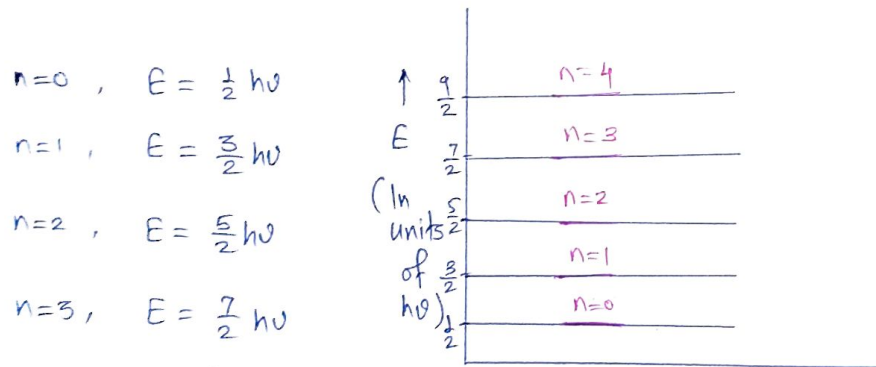 n=0 , E = 1/2 hυ
n=1 , E = 3/2 hυ
n=2 , E = 5/2 hυ
n=3, E = 7/2 hυ
↑
E
(In
units
of
hυ)
9/2 n=4
7/2 n=3
5/2 n=2
3/2 n=1
1/2 n=0